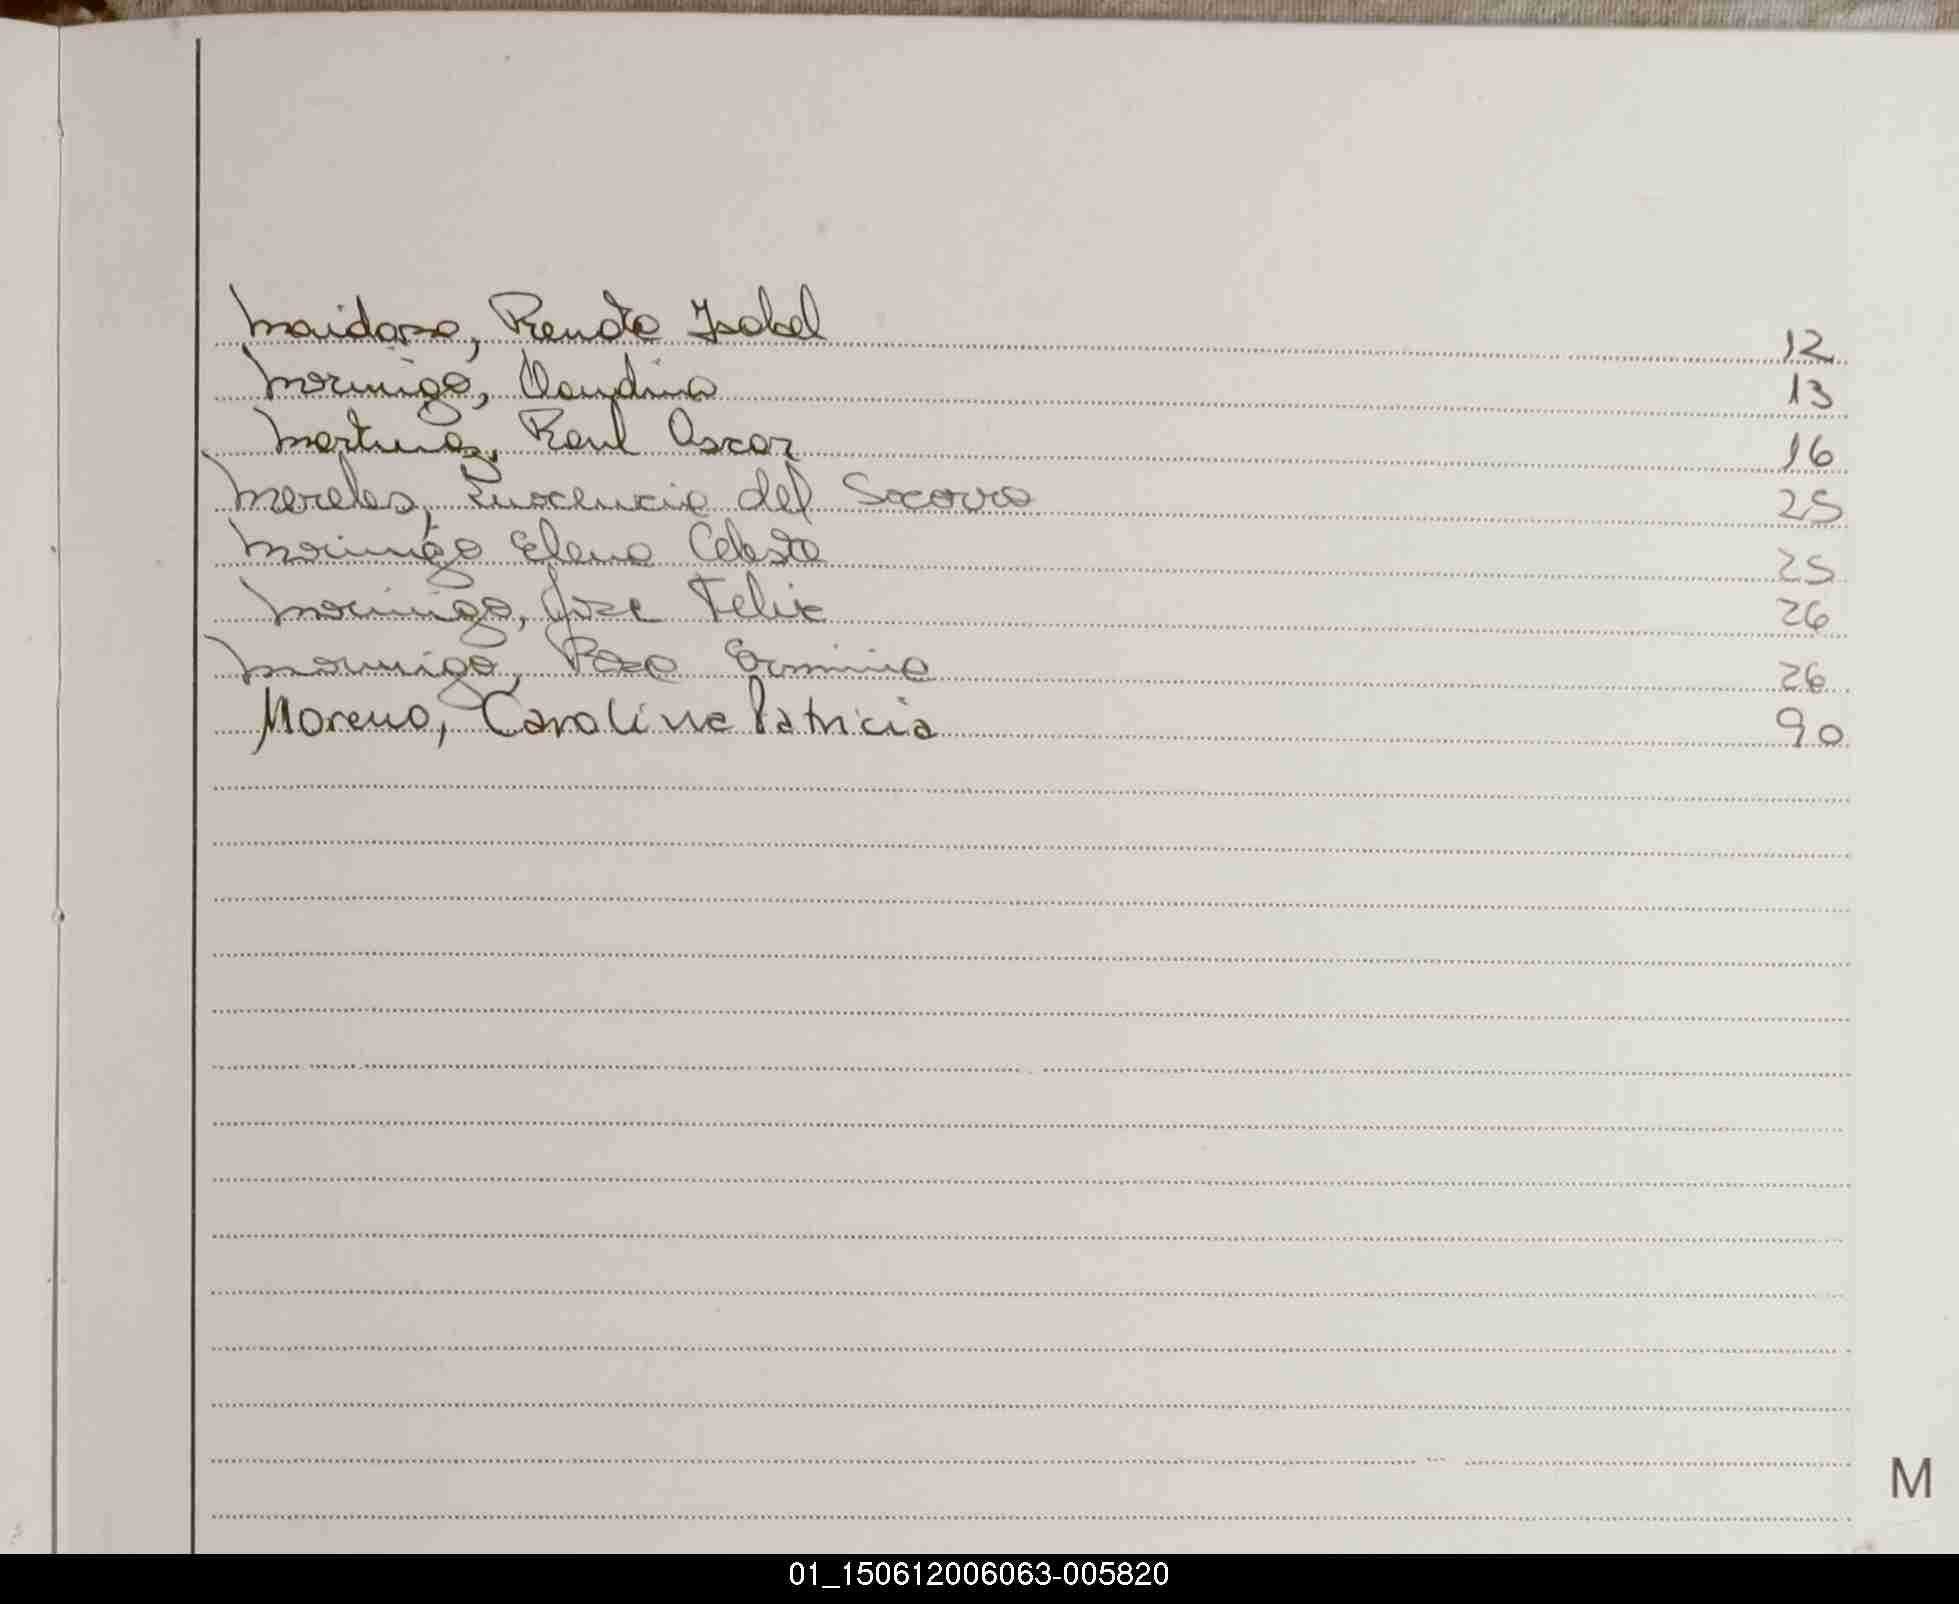 Maidana, Renata Isabel 12
Morinigo, Claudina 13
Martinez, Raul Oscar 16
Mereles, Inocencia del Socorro 25
Morinigo Elena Celeste 25
Morinigo, Jose Felix 26
Morinigo, Rosa Erminia 26
Moreno, Carolina Patricia 90
M
01_150612006063-005820